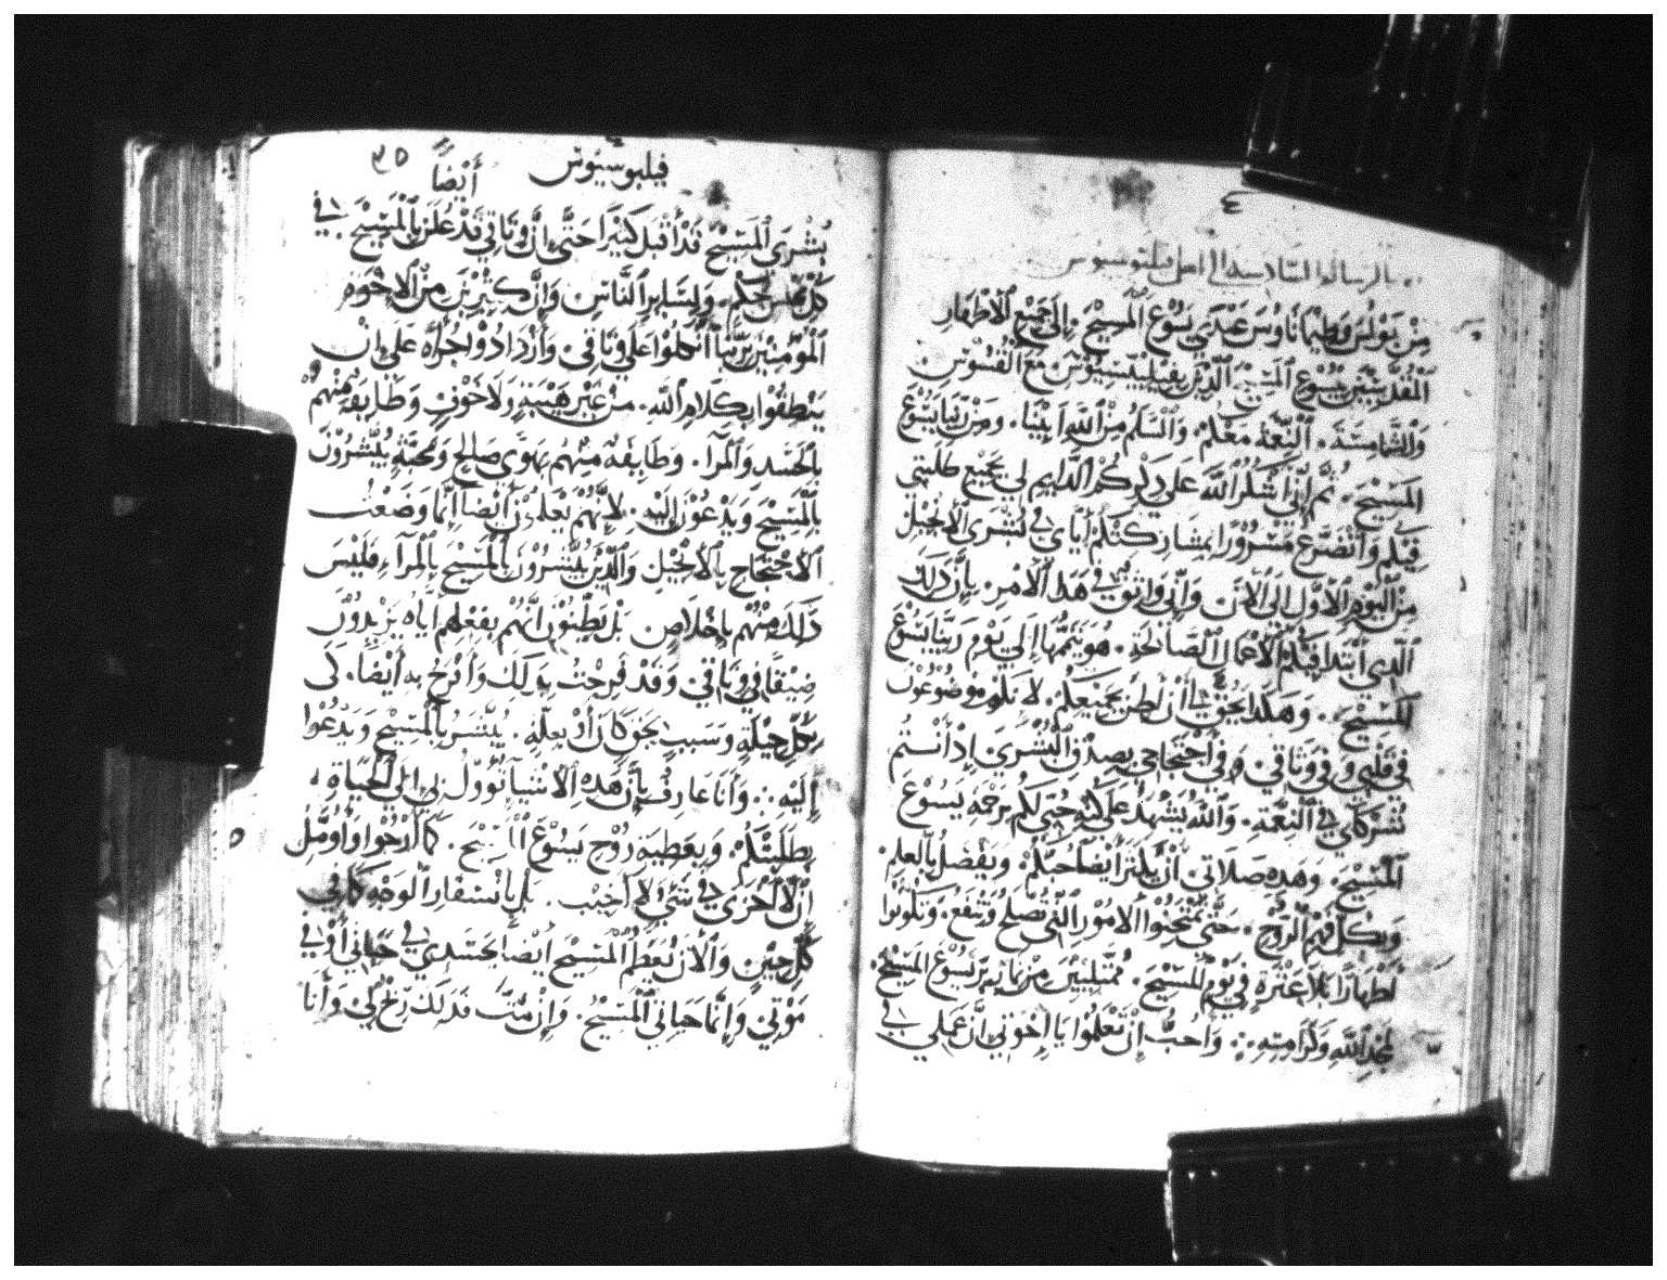 الرساله السادسه الى اهل فيلبوسيوس
مِنْ بَوْلُسَ وَطِيمَاثَاوُسَ عَبْدَي يَسُوْعَ ٱلْمَسِيْحَ. اِلَى جَمِيْعِ ٱلْاَطْهَارِ
ٱلْمُقَدَّسِيْنَ بِيَسُوْعَ ٱلْمَسِيْحِ ٱلَّذِيْنَ بِفِيْلِيْبَسِيُوْسَ مَعَ ٱلْقُسُوْسِ
وَٱلشَّمَامِسَةِ. ٱلنِّعْمَةُ مَعَكُمْ. وَٱلسَّلَمُ مِنْ ٱللَّهِ اَبِيْنَا. وَمِنْ رَبِّنَا يَسُوْعَ
ٱلْمَسِيْحَ. ثُمَّ اِنِّي اَشْكُرُ ٱللَّهَ عَلَى ذِكْرِكُمْ ٱلدَّايِمِ لِي بِجَمِيْعِ طَلِبَتِي
فِيْكُمْ وَاَتَضَرَّعُ مَسْرُوْرًا بِمُشَارَكَتِكُمْ اِيَّاي فِي بُشْرَى ٱلْاِنْجِيْلِ
مِنَ ٱلْيَوْمِ ٱلْاَوَّلِ اِلَى ٱلْاَنَ وَاِنِّي وَاثِقٌ فِي هَذَا ٱلْاَمْرِ. بِاَنَّ ذَلِكَ
ٱلَّذِي اَبْتَدَا فِيْكُمْ ٱلْاَعْمَالَ ٱلصَّالِحَةِ. هُوَ يُتَمِّمُهَا اِلَى يَوْمِ رَبِّنَا يَسُوْعَ
ٱلْمَسِيْحَ. وَهَكَذَا يَحِقُّ لِي اَنْ اَظُنَّ بِجَمِيْعِكُمْ. لِاَنَّكُمْ مَوْضُوْعُوْنَ
فِي قَلْبِي وَفِي وَثَاقِي وَفِي اَحْتِجَاجِي بِصِدْقِ ٱلْبُشْرَى اِذْ اَنْتُمْ
شُرَكَاي فِي ٱلنِّعْمَةِ. وَٱللَّهُ يَشْهَدُ عَلَى كُنْهِ حُبِّي لَكُمْ بِرَحْمَةِ يَسُوْعَ
ٱلْمَسِيْحَ. وَهَذِهِ صَلَاتِي اَنْ يَكْثُرَ اَيْضًا حُبُّكُمْ. وَيَفْضُلَ بِٱلْعِلْمِ.
وَبِكُلِّ فَهْمِ ٱلرُّوْحِ. حَتَّى تَمْتَحِنُوْا ٱلْاُمُوْرَ ٱلَّتِي تَصْلُحُ وَتَنْفَعُ. وَتَكُوْنُوْا
اَطْهَارًا بِلَا عَثْرَةٍ فِي يَوْمِ ٱلْمَسِيْحَ. مُمْتَلِيِيْنَ مِنْ ثِمَارِ بِرِّ يَسُوْعَ ٱلْمَسِيْحَ.
لِمَجْدِ ٱللَّهِ وَكَرَامَتِهِ ∴ وَاُحِبُّ اِنْ تَعْلَمُوْا يَا اِخْوَتِي اَنَّ عَمَلِي فِي
فيلبوسيوس أَيْضًا ٢٥
بُشْرَى ٱلْمَسِيْحَ قَدْ اَقْبَلَ كَثِيْرًا حَتَّى اِنَّ وَثَاقِي قَدْ عُلِنَ بِٱلْمَسِيْحَ فِي
كُلِّ مَجْلِسِ حُكْمٍ. وَلِسَايِرِ ٱلنَّاسِ وَاِنَّ كَثِيْرِيْنَ مِنْ ٱلْاِخْوَةِ
ٱلْمُؤْمِنِيْنَ بِرَبِّنَا اَتَّكَلُوْا عَلَى وَثَاقِي وَاَزْدَادُوْا جُرْاَةً عَلَى اِنْ
يَنْطِقُوْا بِكَلَامِ ٱللَّهِ. مِنْ غَيْرِ هَيْبَةٍ وَلَا خَوْفٍ وَطَايِفَةٌ مِنْهُمْ
بِٱلْحَسَدِ وَٱلْمِرَآ. وَطَايِفَةٌ مِنْهُمْ بِهَوَى صَالِحٍ وَمَحَبَّةٍ يُبَشِّرُوْنَ
بِٱلْمَسِيْحَ وَيَدْعُوْنَ اِلَيْهِ. لِاَنَّهُمْ يَعْلَمُوْنَ اَيْضًا اِنَّمَا وَضِعْتُ
ٱلْاِحْتِجَاجِ بِٱلْاِنْجِيْلِ وَٱلَّذِيْنَ يُبَشِّرُوْنَ بِٱلْمَسِيْحَ بِٱلْمِرَآءِ فَلَيْسَ
ذَلِكَ مِنْهُمْ بِاِخْلَاصٍ بَلْ يَظُنُّوْنَ اَنَّهُمْ بِفِعْلِهِمْ اِيَّاهُ يَزِيْدُوْنَ
ضِيْقًا فِي وَثَاقِي وَقَدْ فَرِحْتُ بِذَلِكَ وَاَفْرَحُ بِهِ اَيْضًا. كَي
بِكُلِّ حِيْلَةٍ وَسَبَبٍ بِحَقٍّ كَانَ اَوْ بِعِلَّةٍ. يُبَشَّرُ بِٱلْمَسِيْحِ وَيَدْعُوْا
اِلَيْهِ ∴ وَاَنَا عَارِفٌ بِاَنَّ هَذِهِ ٱلْاَشْيَآ تَؤُوْلُ بِي اِلَى ٱلْحَيَاةِ.
بِطَلِبَتِكُمْ. وَبِعَطِيَةِ رُوْحِ يَسُوْعَ ٱلْمَسِيْحَ. كَمَا اَرْجُوْا وَاُوَمِّلُ
اِنْ لَا اَخْزَى فِي شَيْ وَلَا اَخِيْبُ. بَلْ بِاِسْفَارِ ٱلْوَجْهِ كَمَا فِي
كُلِّ حِيْنٍ وَٱلْاَنَ يُعَظَّمُ ٱلْمَسِيْحَ اَيْضًا بِجَسَدِي فِي حَيَاتِي اَوْ فِي
مَوْتِي وَاِنَّمَا حَيَاتِي ٱلْمَسِيْحُ. وَاِنْ مُتُّ فَذَلِكَ رِبْحٌ لِي وَاَنَا